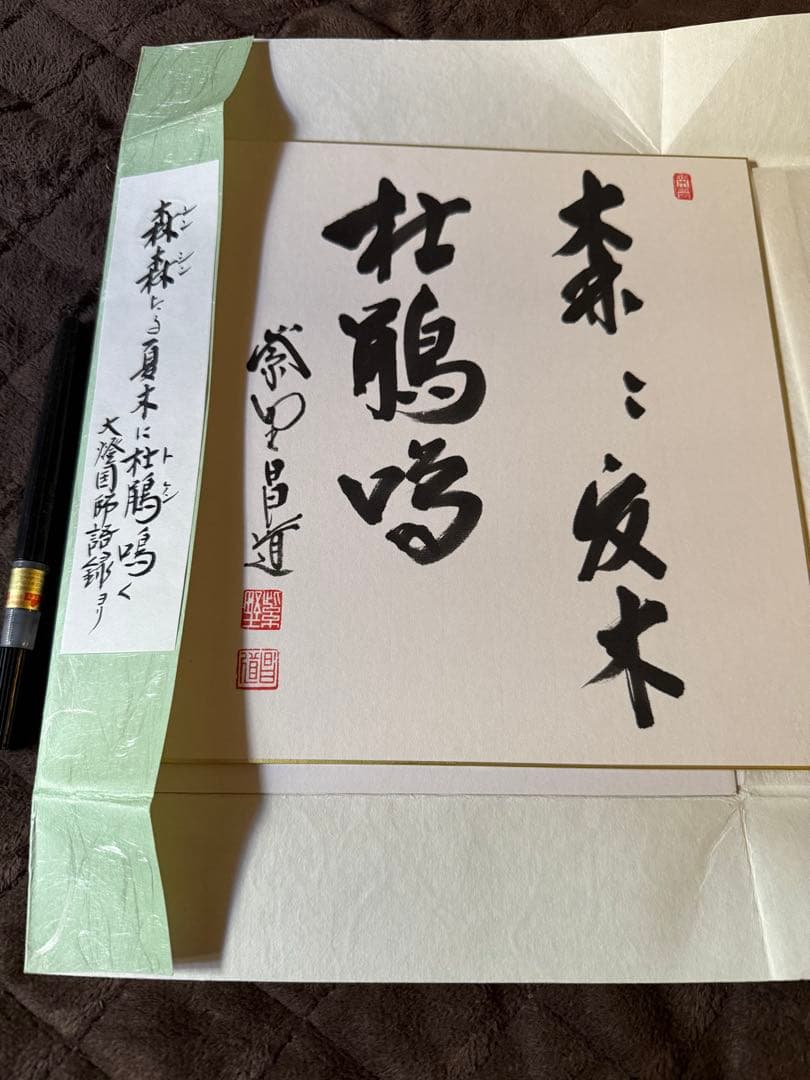 森〻夏木
杜鵑鳴
紫野昌道
紫野
昌道
森森たる夏木に杜鵑鳴く
シンシン
トケン
大燈国師語録ヨリ